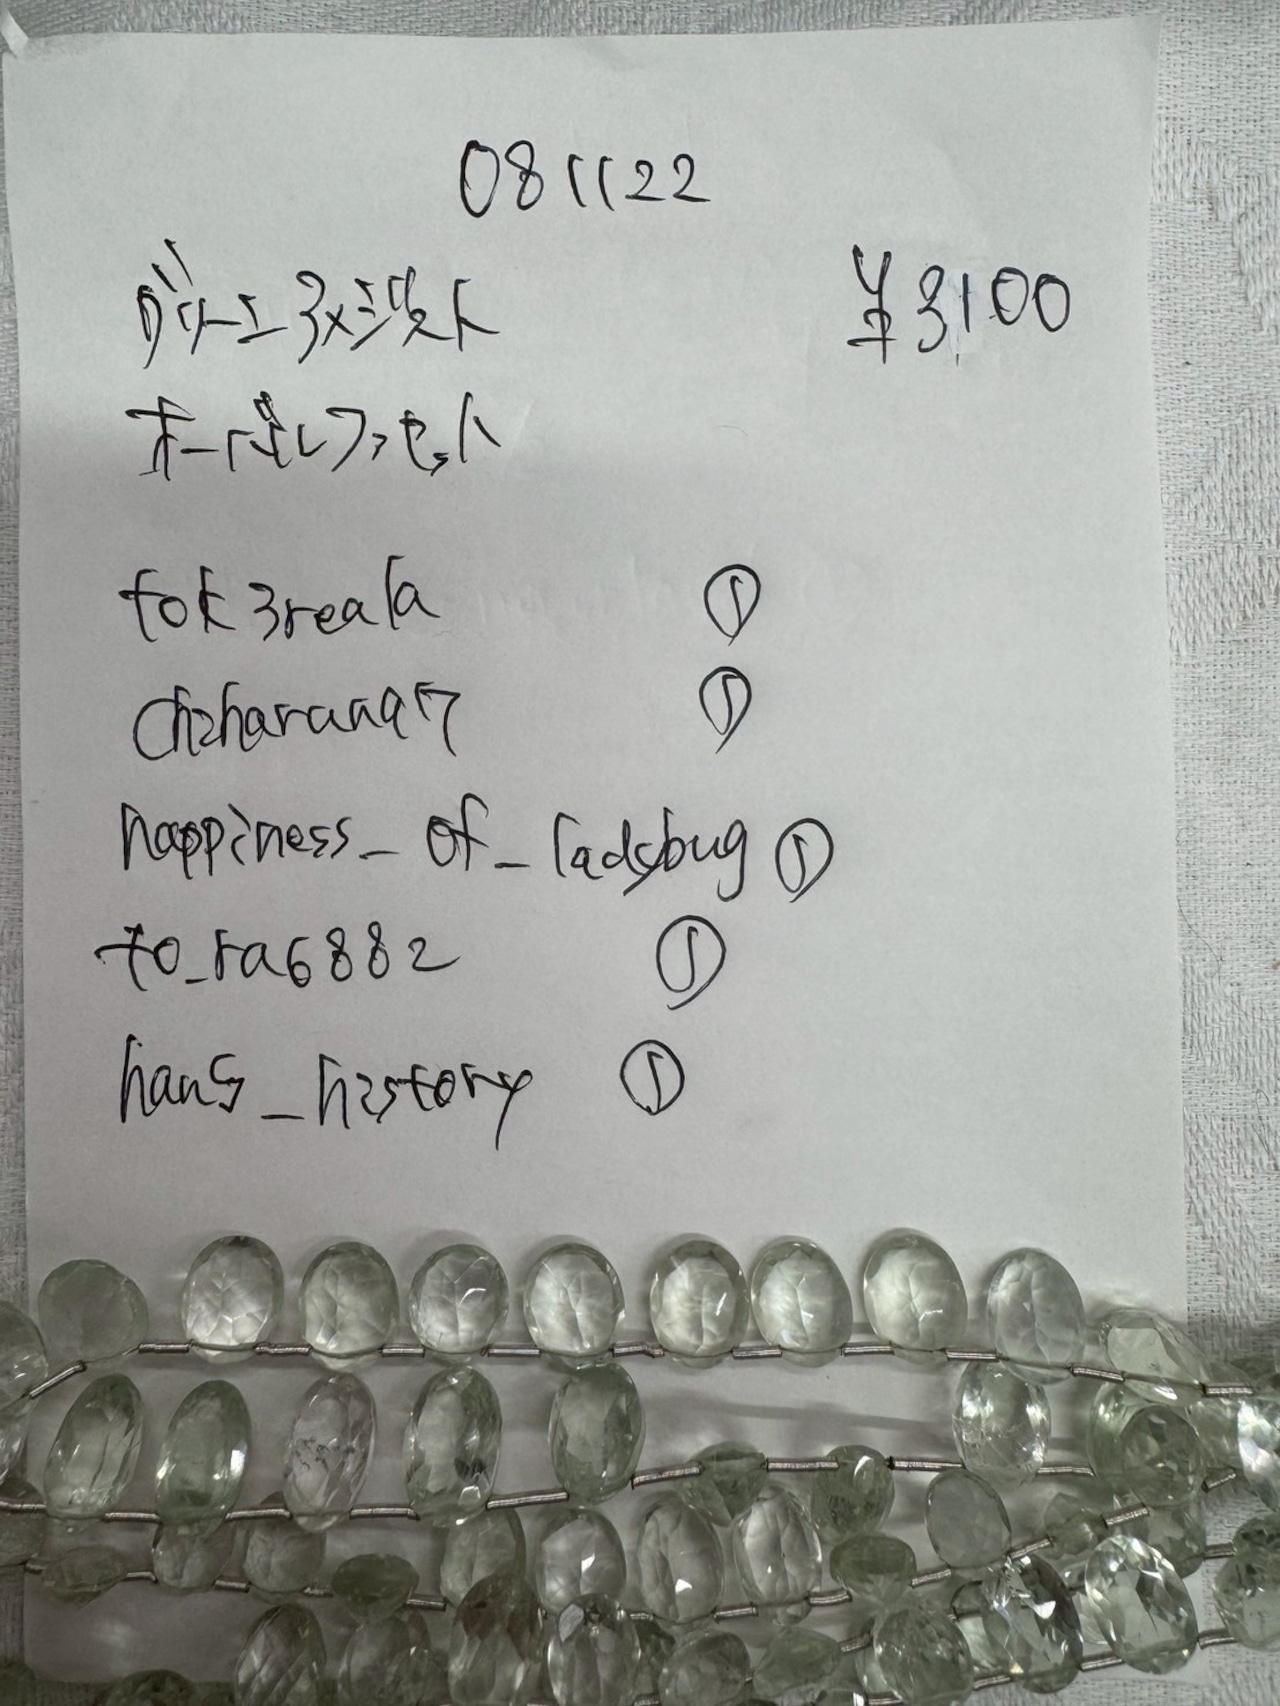 081122
グリーンアメジスト ¥3100
オーバルファセット
tok3reala ①
chiharuna97 ①
happiness_of_ladybug ①
to_ra6882 ①
hans_history ①